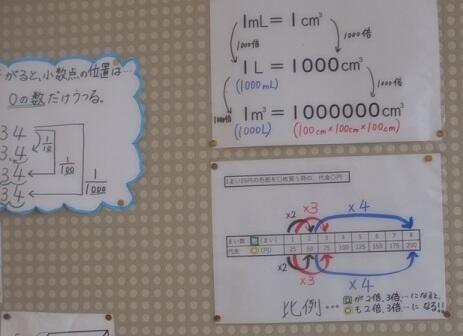 がると、小数点の位置は…
0の数だけうつる。
34
3.4
34
34
1/10
1/100
1/1000
1mL = 1cm³
1000倍 1000倍
1L = 1000cm³
(1000mL)
1000倍 1000倍
1m³ = 1000000cm³
(1000L) (100cm×100cm×100cm)
1まい25円の色紙を□枚買う時の、代金○円
×2 ×3 ×4
まい数 □(まい) 1 2 3 4 5 6 7 8
代金 ○(円) 25 50 75 100 125 150 175 200
×2 ×3 ×4
比例… □が2倍、3倍、…になると、
○も2倍、3倍…になる!!